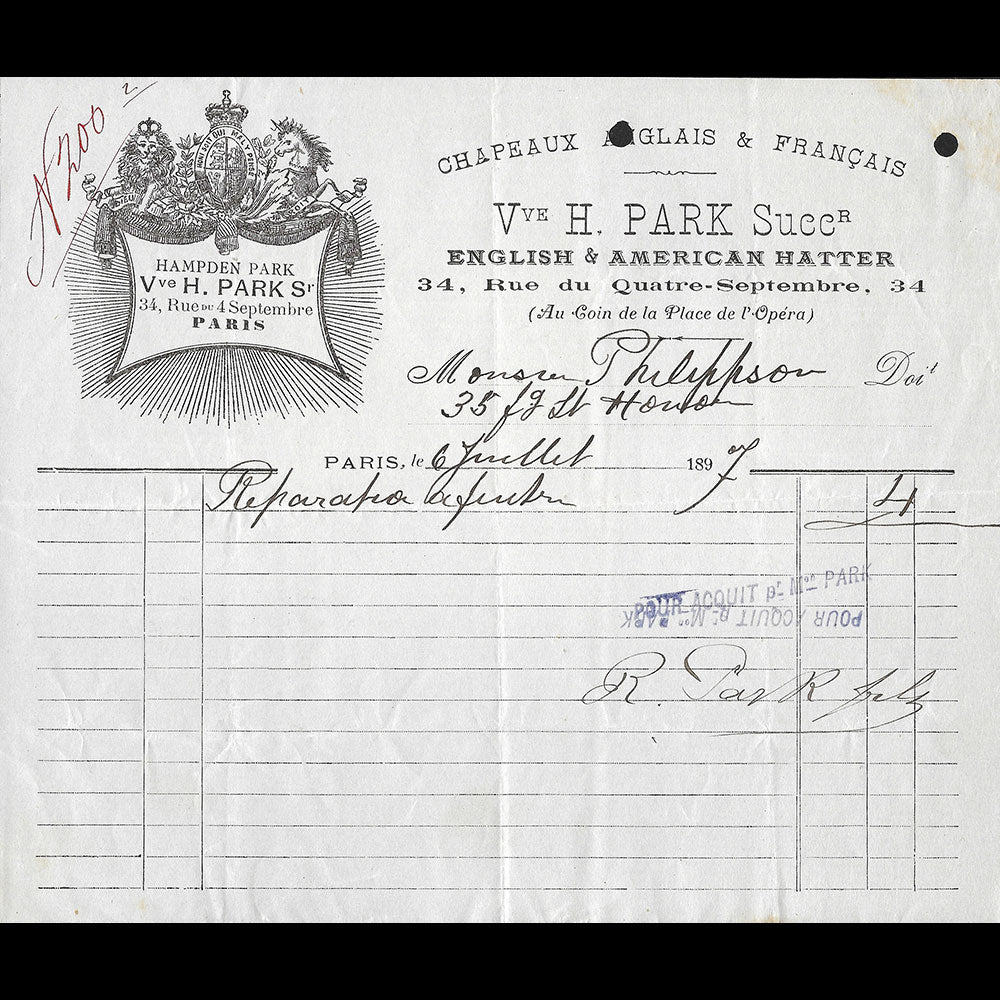 N 200
HONI SOIT QUI MAL Y PENSE
DIEU
HAMPDEN PARK
Vve H. PARK Sr
34, Rue du 4 Septembre
PARIS
CHAPEAUX ANGLAIS & FRANÇAIS
Vve H. PARK Succr
ENGLISH & AMERICAN HATTER
34, Rue du Quatre-Septembre, 34
(Au Coin de la Place de l'Opéra)
Monsieur Philippson Doit
35 fg St Honoré
PARIS, le 6 Juillet 1897
Reparation a feutre 4
POUR ACQUIT pr Mon PARK
POUR ACQUIT pr Mon PARK
R. Park fils